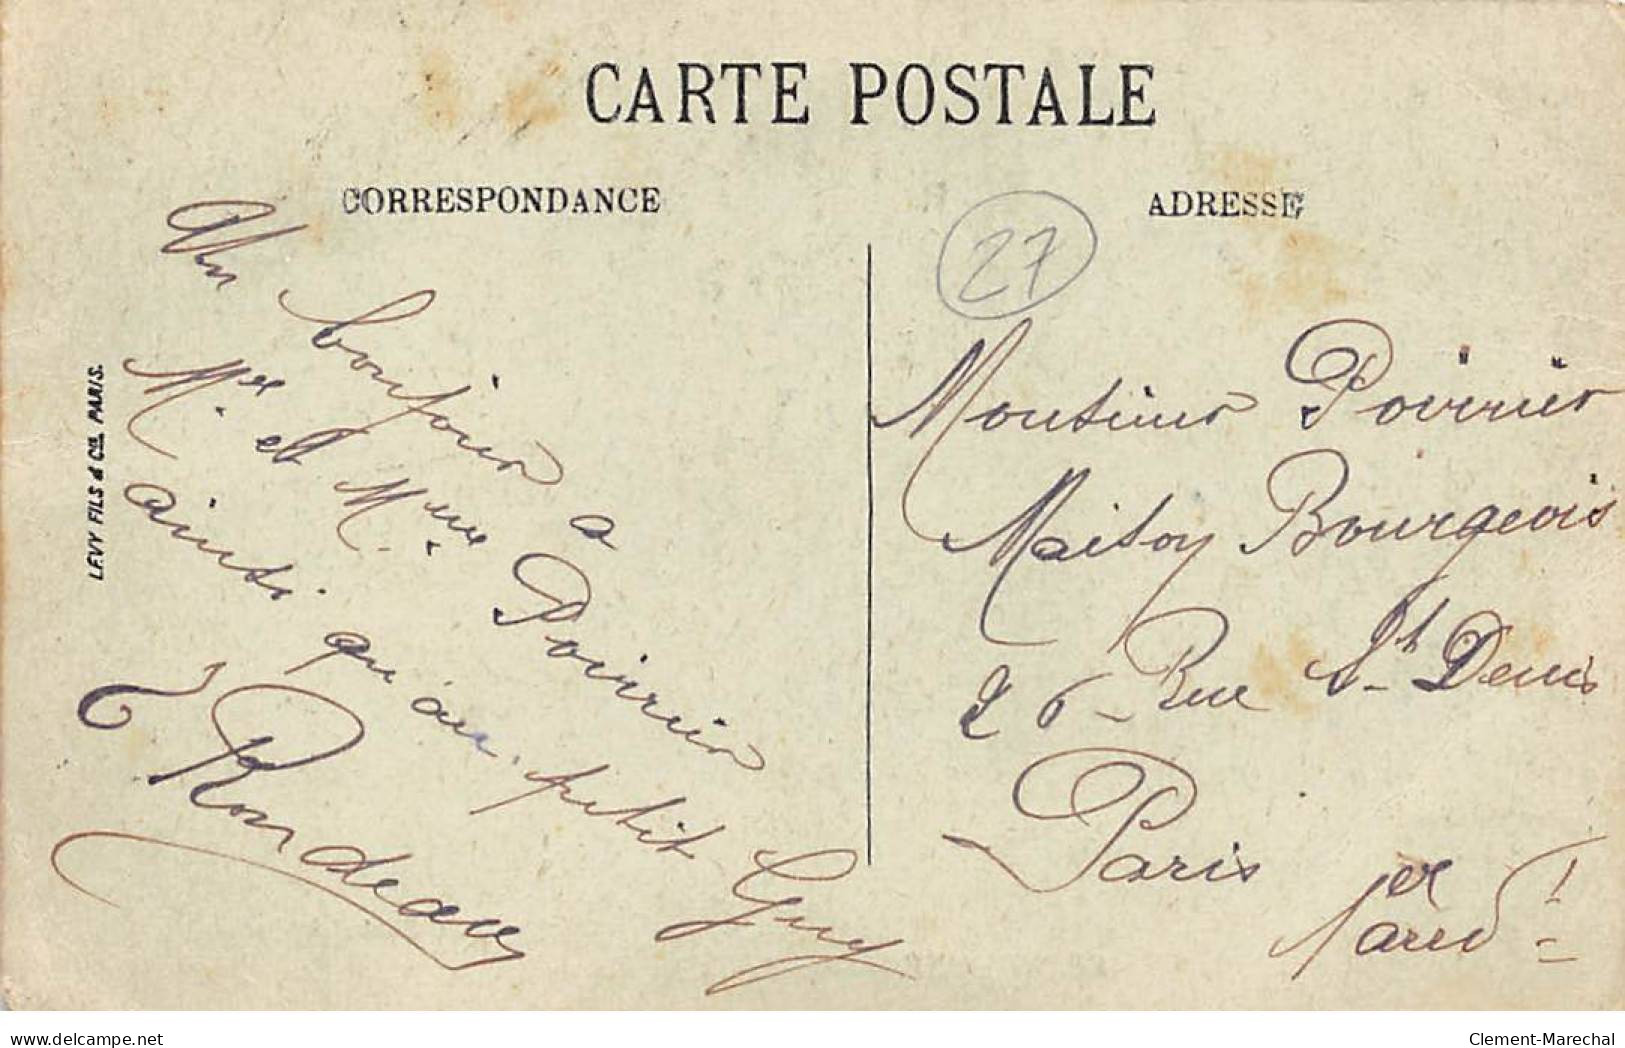 CARTE POSTALE
CORRESPONDANCE
ADRESSE
Un bonjour a
Mr. et Mme Poirrier
ainsi qu'au petit Guy
Rondeau
27
Monsieur Poirrier
Maison Bourgeois
26 - Rue St Denis
Paris
1er arrdt
LEVY FILS & Cie PARIS.
www.delcampe.net
Clement-Marechal